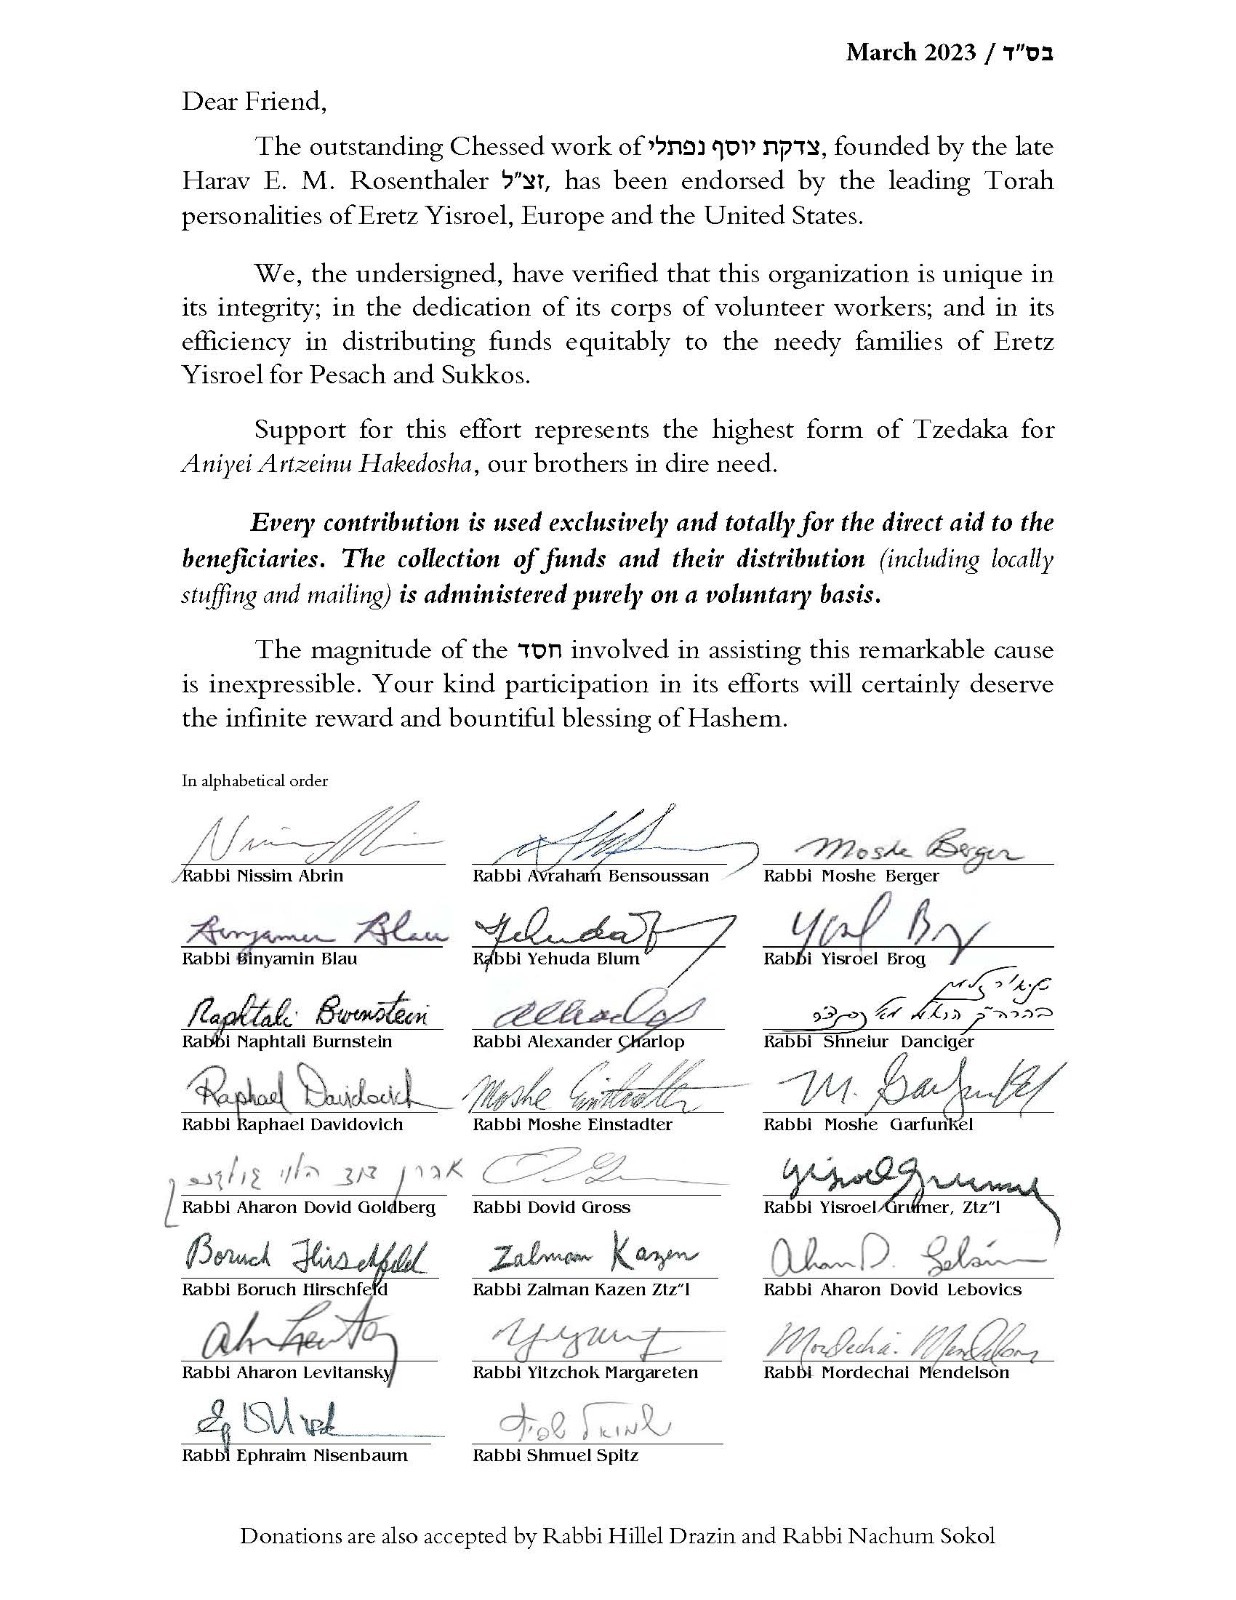 March 2023 / בס"ד
Dear Friend,
The outstanding Chessed work of צדקת יוסף נפתלי, founded by the late
Harav E. M. Rosenthaler זצ"ל, has been endorsed by the leading Torah
personalities of Eretz Yisroel, Europe and the United States.
We, the undersigned, have verified that this organization is unique in
its integrity; in the dedication of its corps of volunteer workers; and in its
efficiency in distributing funds equitably to the needy families of Eretz
Yisroel for Pesach and Sukkos.
Support for this effort represents the highest form of Tzedaka for
Aniyei Artzeinu Hakedosha, our brothers in dire need.
Every contribution is used exclusively and totally for the direct aid to the
beneficiaries. The collection of funds and their distribution (including locally
stuffing and mailing) is administered purely on a voluntary basis.
The magnitude of the חסד involved in assisting this remarkable cause
is inexpressible. Your kind participation in its efforts will certainly deserve
the infinite reward and bountiful blessing of Hashem.
In alphabetical order
Moshe Berger
Rabbi Nissim Abrin Rabbi Avraham Bensoussan Rabbi Moshe Berger
Binyamin Blau Yehuda
Rabbi Binyamin Blau Rabbi Yehuda Blum Rabbi Yisroel Brog
Naphtali Burnstein
Rabbi Naphtali Burnstein Rabbi Alexander Charlop Rabbi Shneiur Danciger
Raphael Davidovich Moshe Einstadter M. Garfunkel
Rabbi Raphael Davidovich Rabbi Moshe Einstadter Rabbi Moshe Garfunkel
אהרן דוד הלוי
Rabbi Aharon Dovid Goldberg Rabbi Dovid Gross Rabbi Yisroel Grumer, Ztz"l
Boruch Hirschfeld Zalman Kazen Aharon D.
Rabbi Boruch Hirschfeld Rabbi Zalman Kazen Ztz"l Rabbi Aharon Dovid Lebovics
Mordechai Mendelson
Rabbi Aharon Levitansky Rabbi Yitzchok Margareten Rabbi Mordechai Mendelson
Rabbi Ephraim Nisenbaum Rabbi Shmuel Spitz
Donations are also accepted by Rabbi Hillel Drazin and Rabbi Nachum Sokol